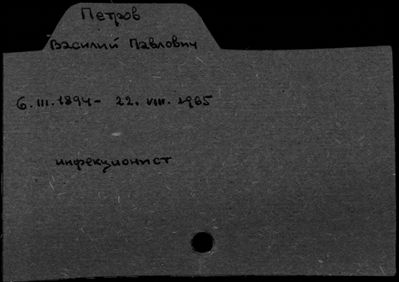 Петров
Василий Павлович
6.III.1894 - 22.VIII.1965
инфекционист